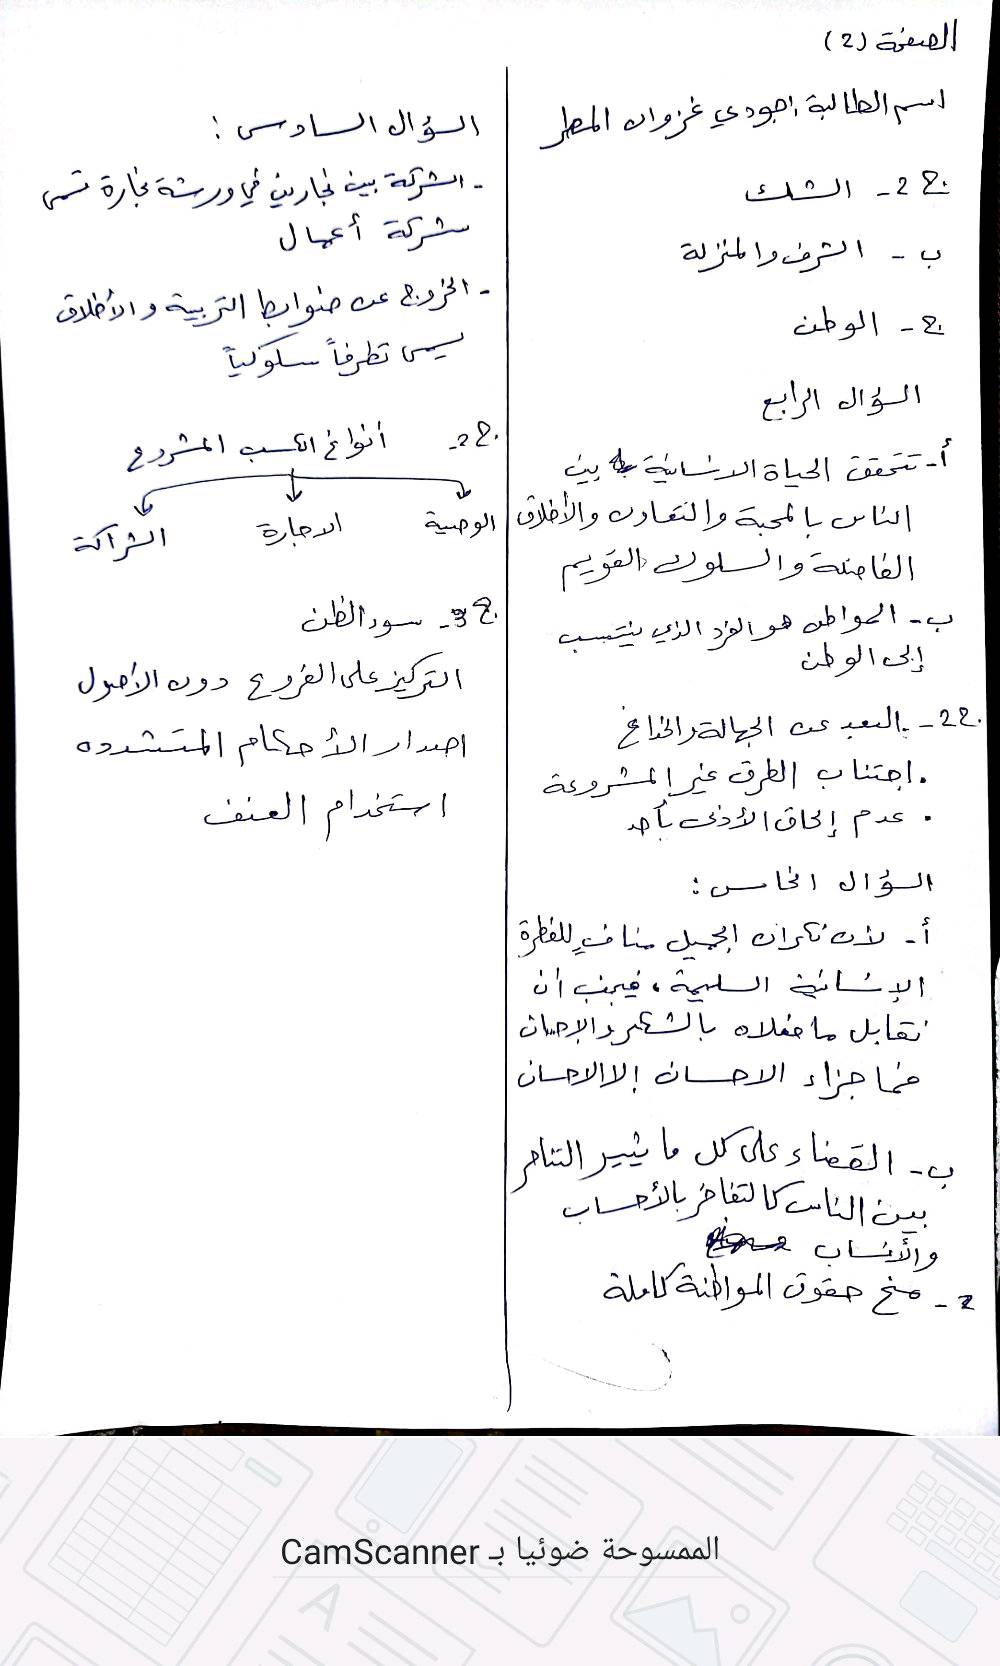 الصفحة (2)
اسم الطالبة: جودي غزوان المطر
ج2- الشك
ب - الشرف والمنزلة
ج - الوطن
السؤال الرابع
أ- تتحقق الحياة الانسانية بين
الناس بالمحبة والتعاون والأخلاق
الفاضلة والسلوك القويم
ب- المواطن هو الفرد الذي ينتسب
إلى الوطن
ج2- البعد عن الجهالة والخداع
. اجتناب الطرق غير المشروعة
. عدم إلحاق الأذى بأحد
السؤال الخامس :
أ- لأن نكران الجميل منافٍ للفطرة
الإنسانية السليمة، فيجب أن
نقابل ما فعلاه بالشكر والإحسان
فما جزاء الاحسان إلا الاحسان
ب- القضاء على كل ما يثير التناحر
بين الناس كالتفاخر بالأحساب
والأنساب
2- منح حقوق المواطنة كاملة
السؤال السادس :
- الشركة بين نجارين في ورشة نجارة تسمى
شركة أعمال
- الخروج عن ضوابط التربية والأخلاق
يسمى تطرفاً سلوكياً
ج2- أنواع الكسب المشروع
الوصية الاجارة الشراكة
ج3- سوء الظن
التركيز على الفروع دون الأصول
اصدار الأحكام المتشدده
استخدام العنف
الممسوحة ضوئيا بـ CamScanner